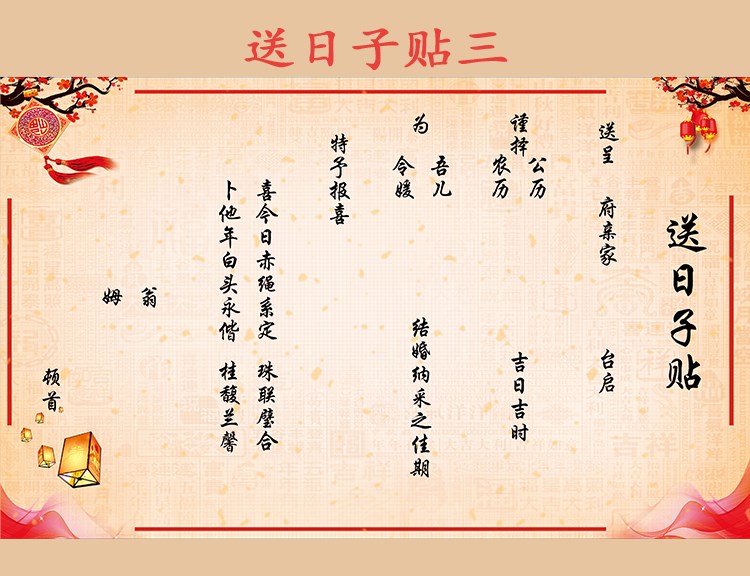 送日子贴三
送日子贴
送呈 府亲家 台启
谨择 公历 农历 吉日吉时
为 吾儿 令媛 结婚纳采之佳期
特予报喜
喜今日赤绳系定 珠联璧合
卜他年白头永偕 桂馥兰馨
翁
姆
顿首